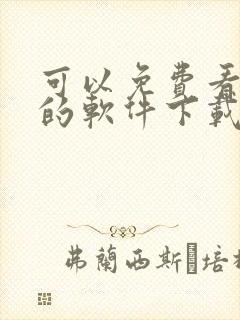 可以免費看
的軟件下載
弗蘭西斯·培根